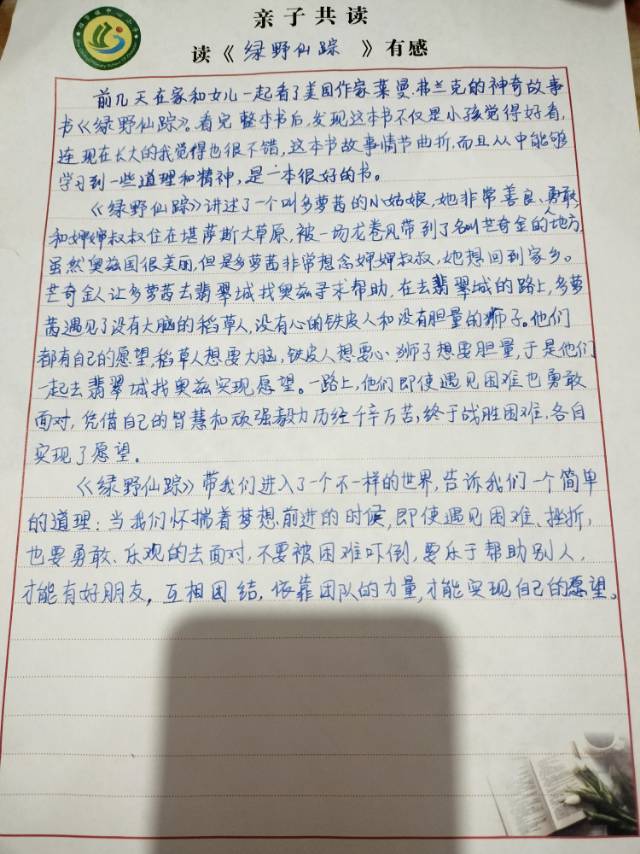 亲子共读
读《绿野仙踪》有感
前几天在家和女儿一起看了美国作家莱曼·弗兰克的神奇故事
书《绿野仙踪》。看完整本书后,发现这本书不仅是小孩觉得好看,
连现在长大的我觉得也很不错,这本书故事情节曲折,而且从中能够
学习到一些道理和精神,是一本很好的书。
《绿野仙踪》讲述了一个叫多萝茜的小姑娘,她非常善良、勇敢,
和婶婶叔叔住在堪萨斯大草原,被一场龙卷风带到了名叫芒奇金人的地方,
虽然奥兹国很美丽,但是多萝茜非常想念婶婶叔叔,她想回到家乡。
芒奇金人让多萝茜去翡翠城找奥兹寻求帮助,在去翡翠城的路上,多萝
茜遇见了没有大脑的稻草人,没有心的铁皮人和没有胆量的狮子。他们
都有自己的愿望,稻草人想要大脑,铁皮人想要心,狮子想要胆量,于是他们
一起去翡翠城找奥兹实现愿望。一路上,他们即使遇见困难也勇敢
面对,凭借自己的智慧和顽强毅力历经千辛万苦,终于战胜困难,各自
实现了愿望。
《绿野仙踪》带我们进入了一个不一样的世界,告诉我们一个简单
的道理:当我们怀揣着梦想前进的时候,即使遇见困难、挫折,
也要勇敢、乐观的去面对,不要被困难吓倒,要乐于帮助别人,
才能有好朋友,互相团结,依靠团队的力量,才能实现自己的愿望。